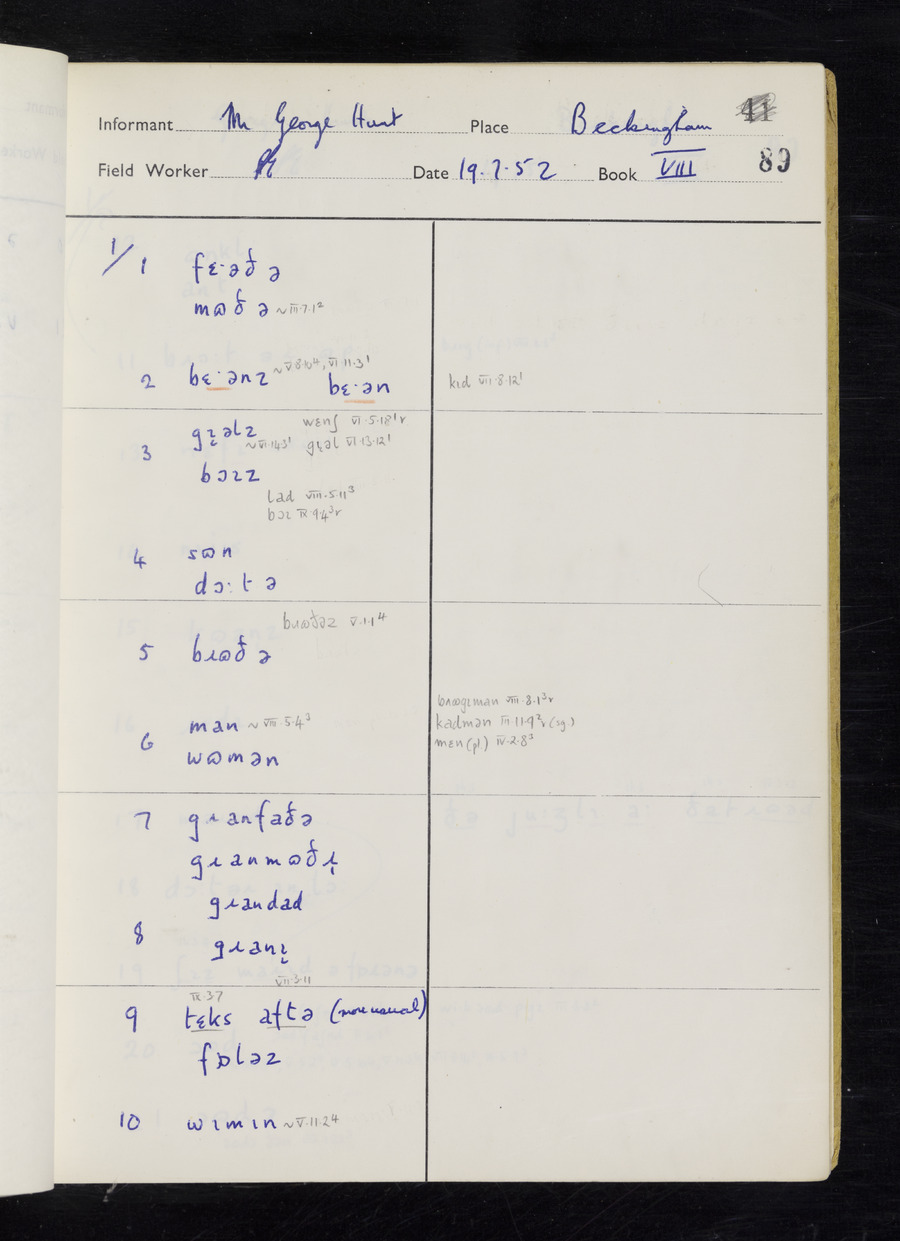 Informant Mr George Hunt Place Beckingham 41
Field Worker Date 19.7.52 Book VIII 89
1/ 1 fɛ·əðə
mɷðə ~III.7.1²
2 bɛ·ənz ~V.8.10⁴, VI.11.3¹ bɛ·ən kɪd VII.8.12¹
3 gɪ̨əlz wɛnʃ VI.5.18¹r
~VI.14.3¹ gɪ̨əl VI.13.12¹
bɔɪz
lad VIII.5.11³
bɔɪ IX.9.4³r
4 sɷn
dɔ:tə
bɹɷðəz V.1.1⁴
5 bɹɷðə
6 man ~VIII.5.4³
wɷmən
kadmən III.11.9²r (sg.)
mɛn (pl) IV.2.8³
7 gɹanfaðə
gɹanmɷðɪ̨
gɹandad
8 gɹanɪ̨
VII.3.11
IX.3.7
9 tɛks aftə (more usual)
fɒləz
10 wɪmɪn ~V.11.2⁴